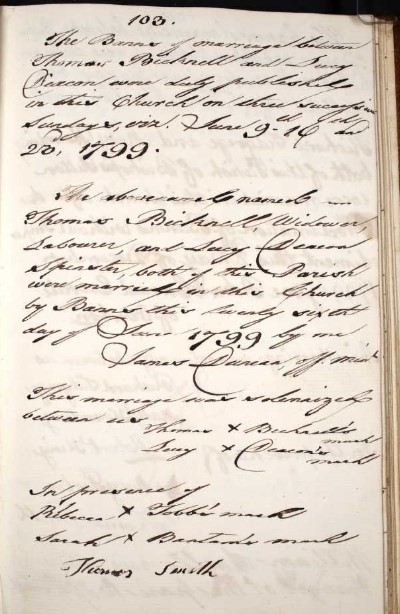 103.
The Banns of marriage between
Thomas Bicknell and Lucy
Deacon were duly published
in this Church on three successive
Sundays, viz. June 9th 16th and
23d, 1799.
The above named
Thomas Bicknell, Widower,
Labourer, and Lucy Deacon
Spinster, both of this Parish
were married in this Church
by Banns this twenty sixth
day of June 1799 by me
James Duncan off. Mintr
This marriage was solemnized
between us
Thomas X Bicknell's mark
Lucy X Deacon's mark
In presence of
Rebecca X Tubb's mark
Sarah X mark
Thomas Smith